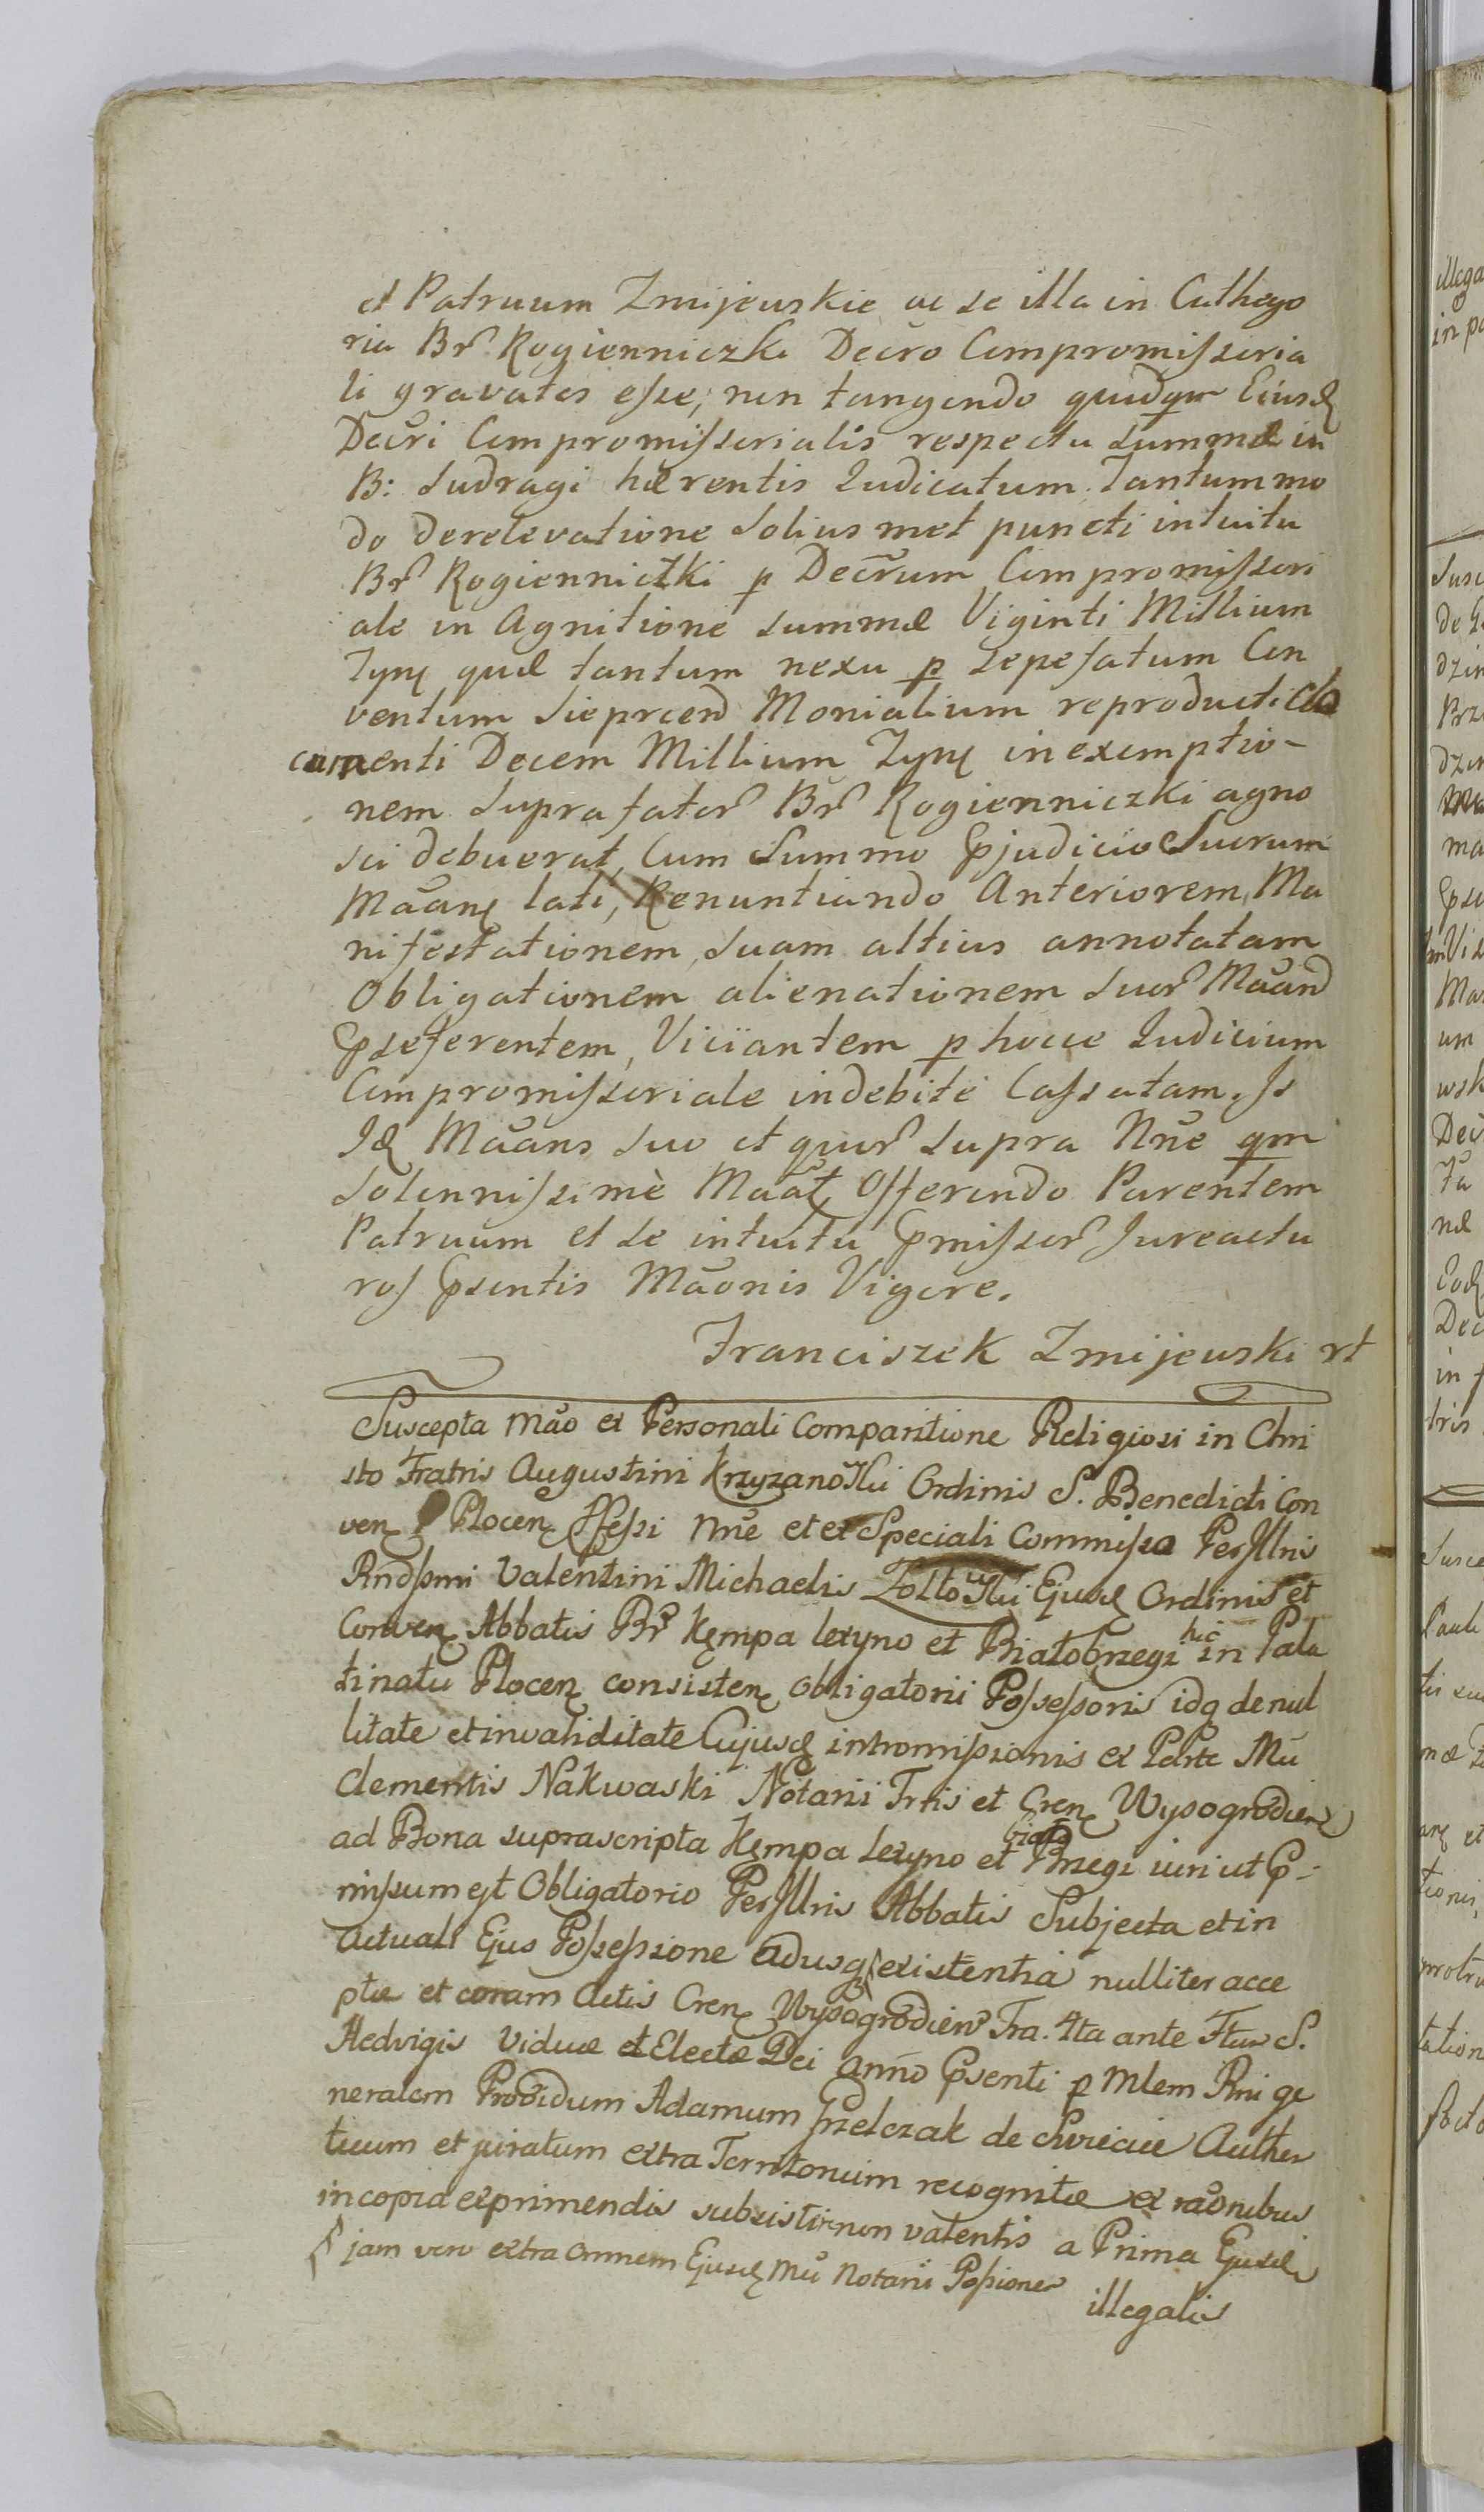 et Patruum Zmijewskie ac se illa in Cathego
ria Br̃ Rogienniczki Decro Compromisseria
li gravatos esse, non tangendo quidqm Eiusd
Decri Compromissorialis respectu summæ in
B: Sudragi hærentis Iudicatum. Tantummo
do derelevatione Solius met puncti intuitu
Br̃ Rogienniczki p Decrum Compromissori
ale in Agnitione summæ Viginti Millium
Zyn quæ tantum nexu p sepefatum Con
ventum Sieprcen Monialium reproducti
cumenti Decem Millium Zyn in exemptio-
nem suprafator̃ Br̃ Rogienniczki agno
sci debuerat, Cum Summo Pjudicio Suorum
Māan lati, Renuntiando Anteriorem Ma
nifestationem, suam altius annotatam
Obligationem alienationem suor̃ Māan
Pseferentem, Viciantem p hocce Iudicium
Compromissoriale indebitè Cassatam. Is
Id Māans suo et quor̃ supra Nñe qm
Solennissimè Māat, Offerendo Parentem
Patruum et se intuitu Pmissor̃ Jureactu
ros Psentis Māonis Vigore.
Franciszek Zmijewski
Suscepta Mão ex Personali Comparitione Religiosi in Chri
sto Fratris Augustini Krzyzanoski Ordinis S. Benedicti Con
ven Plocen Pfessi Nñe et ex Speciali Commissa PerIllris
Rndssmi Valentini Michaelis Zołtowski Ejusd Ordinis et
Conven Abbatis Br̃ Kempa Lexyno et Białobrzegi hic in Pala
tinatu Plocen consisten obligatorii Possessoris idq de nul
litate et invaliditate Cujusd intromissionis ex Parte Mci
Clementis Nakwaski Notarii Trris et Cren Wysogrodien
ad Bona suprascripta Kempa Lexyno et Białobrzegi iuri ut P-
missum est Obligatorio PerIllris Abbatis Subjecta et in
actuali Ejus Possessione adusq existentia nulliter acce
ptæ et coram Actis Cren Wysogrodien Fra. 4ta ante Ftum S.
Hedvigis Viduæ et Electæ Dei anno Psenti p Mlem Rni ge
neralem Providum Adamum de Authen
ticum et juratum extra Territorium recognitæ ex rãonibus
in copia exprimendis subsistere non valentis a Prima Ejusd
jam vero extra omnem Ejusd Mci Notarii Possionem
illegalis